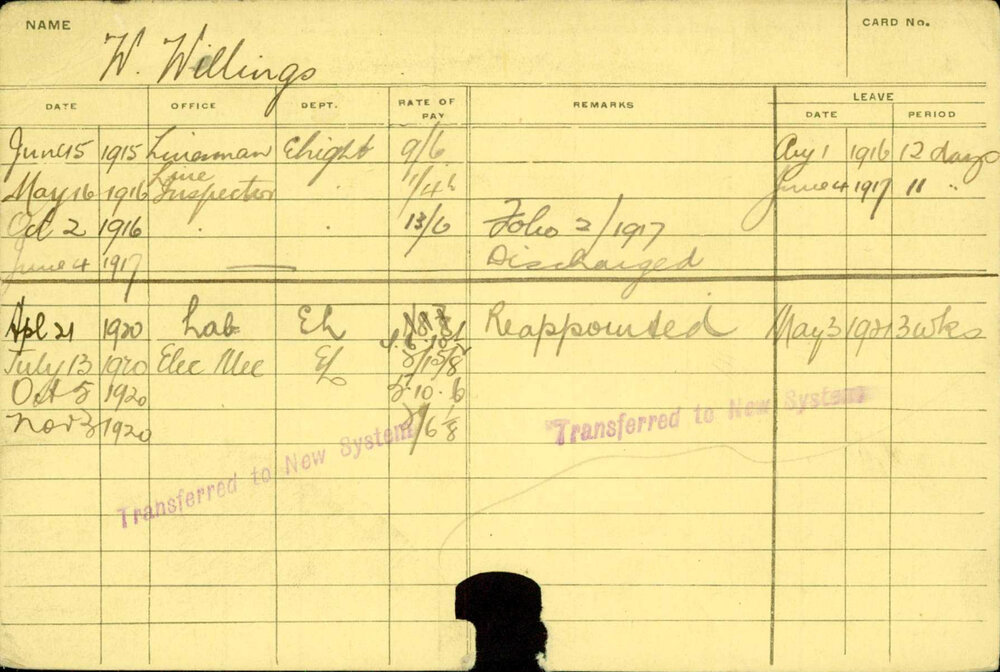 NAME
CARD No.
W. Willings
DATE OFFICE DEPT. RATE OF PAY REMARKS LEAVE
DATE PERIOD
June 15 1915 Linesman Elright 9/6 Aug 1 1916 12 days
May 16 1916 Line Inspector " June 4 1917 11 "
Oct 2 1916 " 13/6 Folio 2/1917
June 4 1917 Discharged
Apl 21 1920 Lab EL Reappointed May 3 1921 3 wks
July 13 1920 Elec Mec EL 5/15/8
Oct 5 1920 5.10.6
Nov 3 1920
Transferred to New System
Transferred to New System